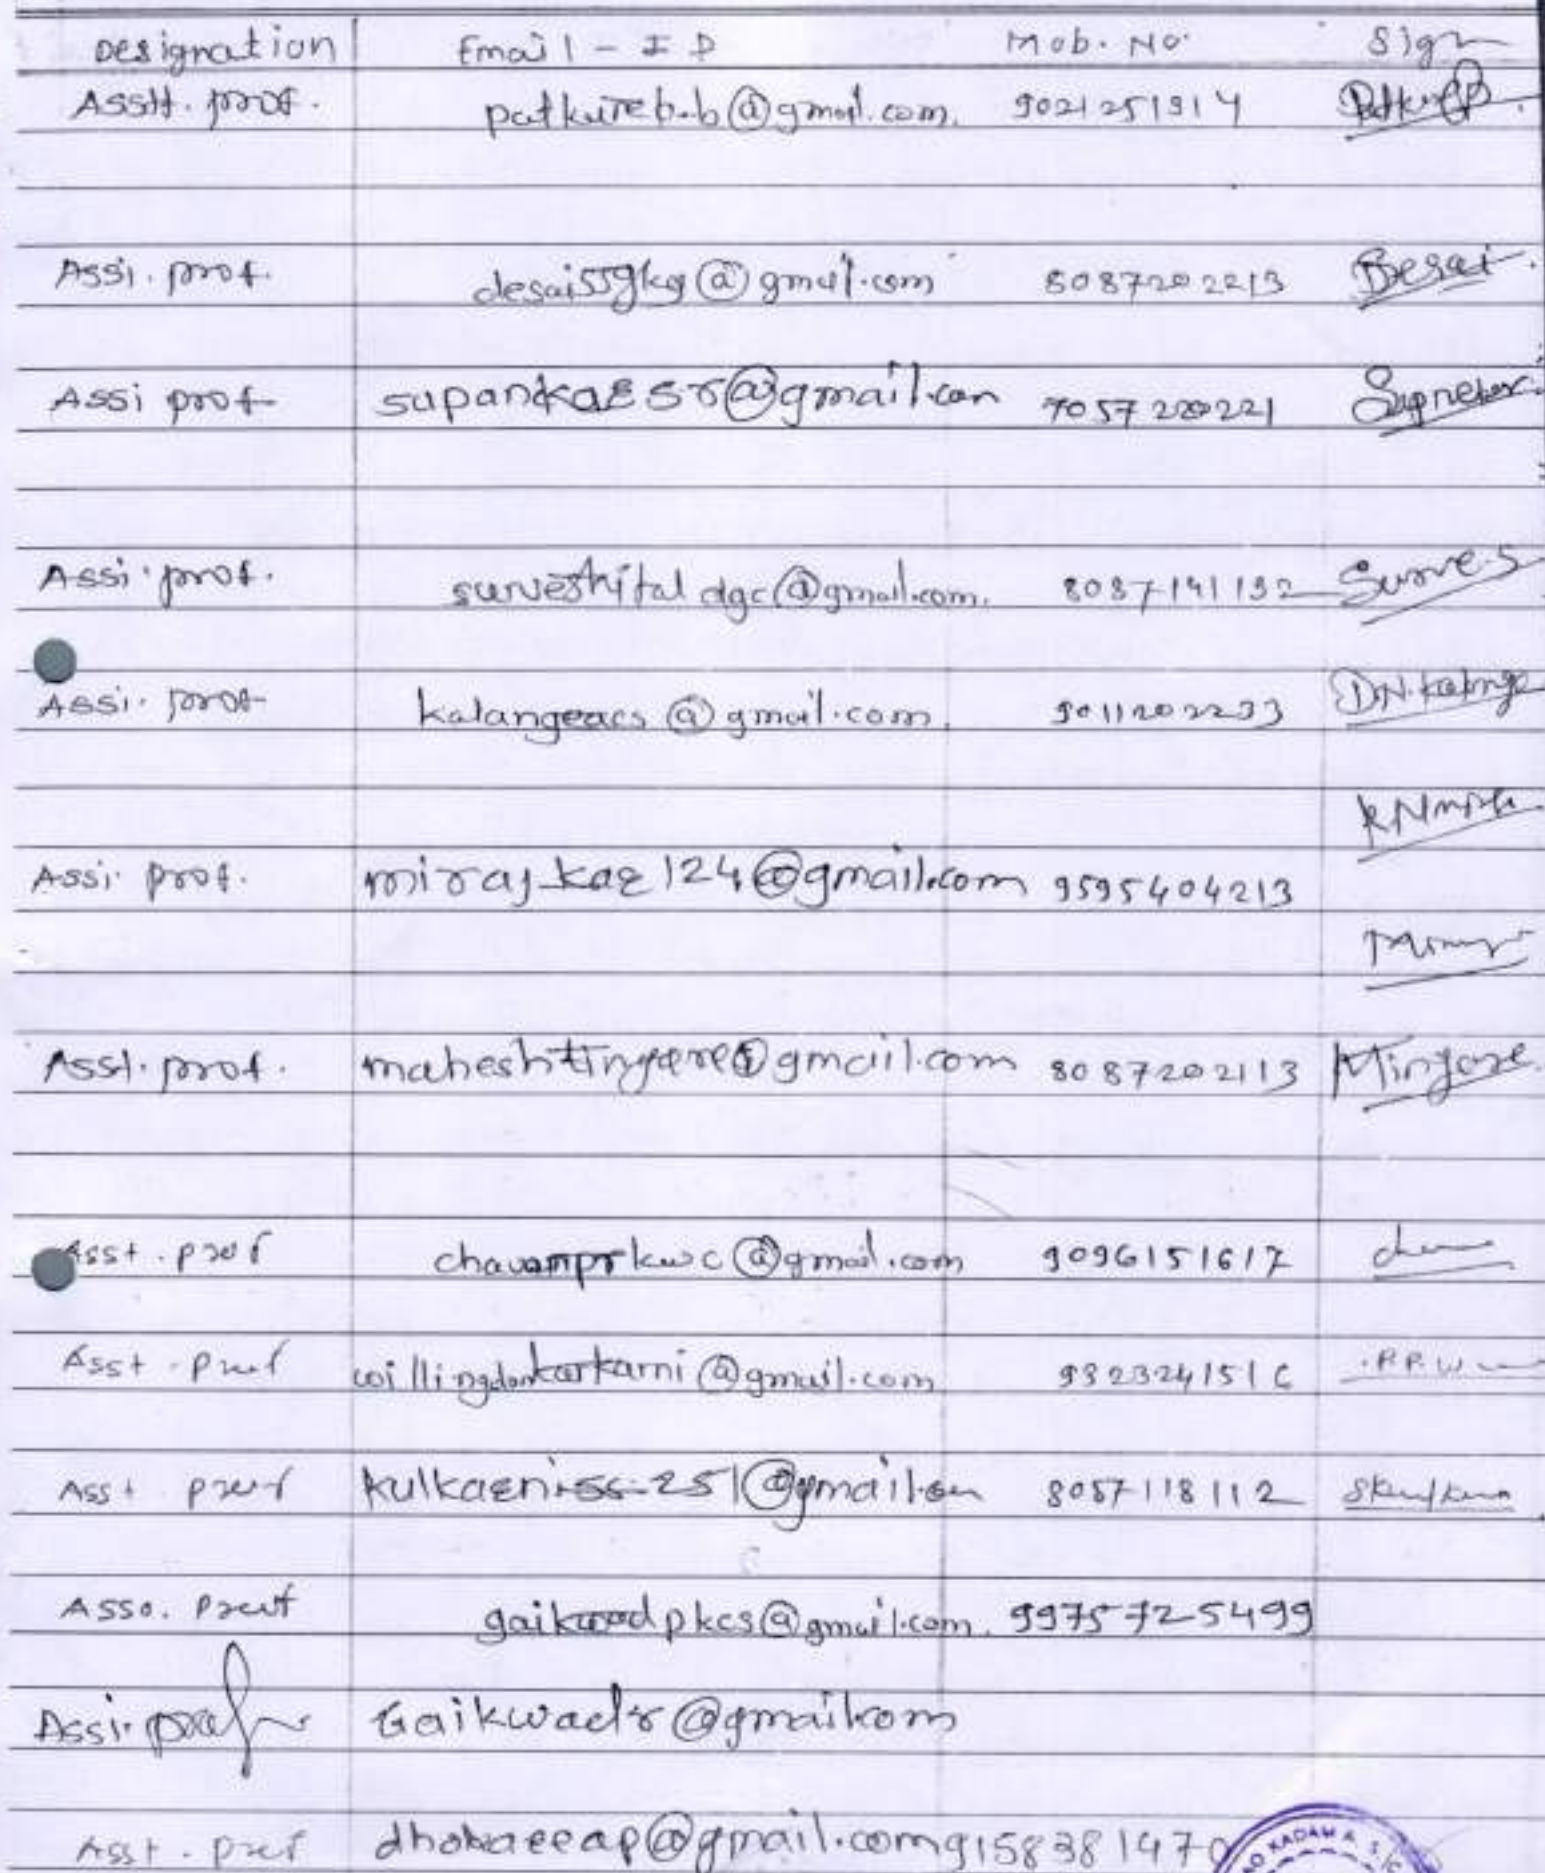 Designation Email - ID Mob. No. Sign
Asstt. prof. patkureb.b@gmail.com. 9021251914
Assi. prof. desaissgkg@gmail.com 8087202213 Desai
Assi prof supankaesr@gmail.com 7057220221
Assi. prof. surveshital dgc@gmail.com. 8087141192 Surve.S
Assi. prof kalangeacs@gmail.com. 9011202233 D.N. Kalange
Assi. prof. mirajkae124@gmail.com 9595404213
Asst. prof. maheshtingare@gmail.com 8087202113 Mingare
Asst. prof chavanprkwc@gmail.com 9096151617
Asst. prof willingdonkarkarni@gmail.com
Asst prof kulkaeniss251@gmail.com 8057118112
Asso. Prof gaikwadpkcs@gmail.com. 99757725499
Assi. prof Gaikwadr@gmail.com
Asst. prof dhobaeeap@gmail.com 9158381470
KADAM A. S.